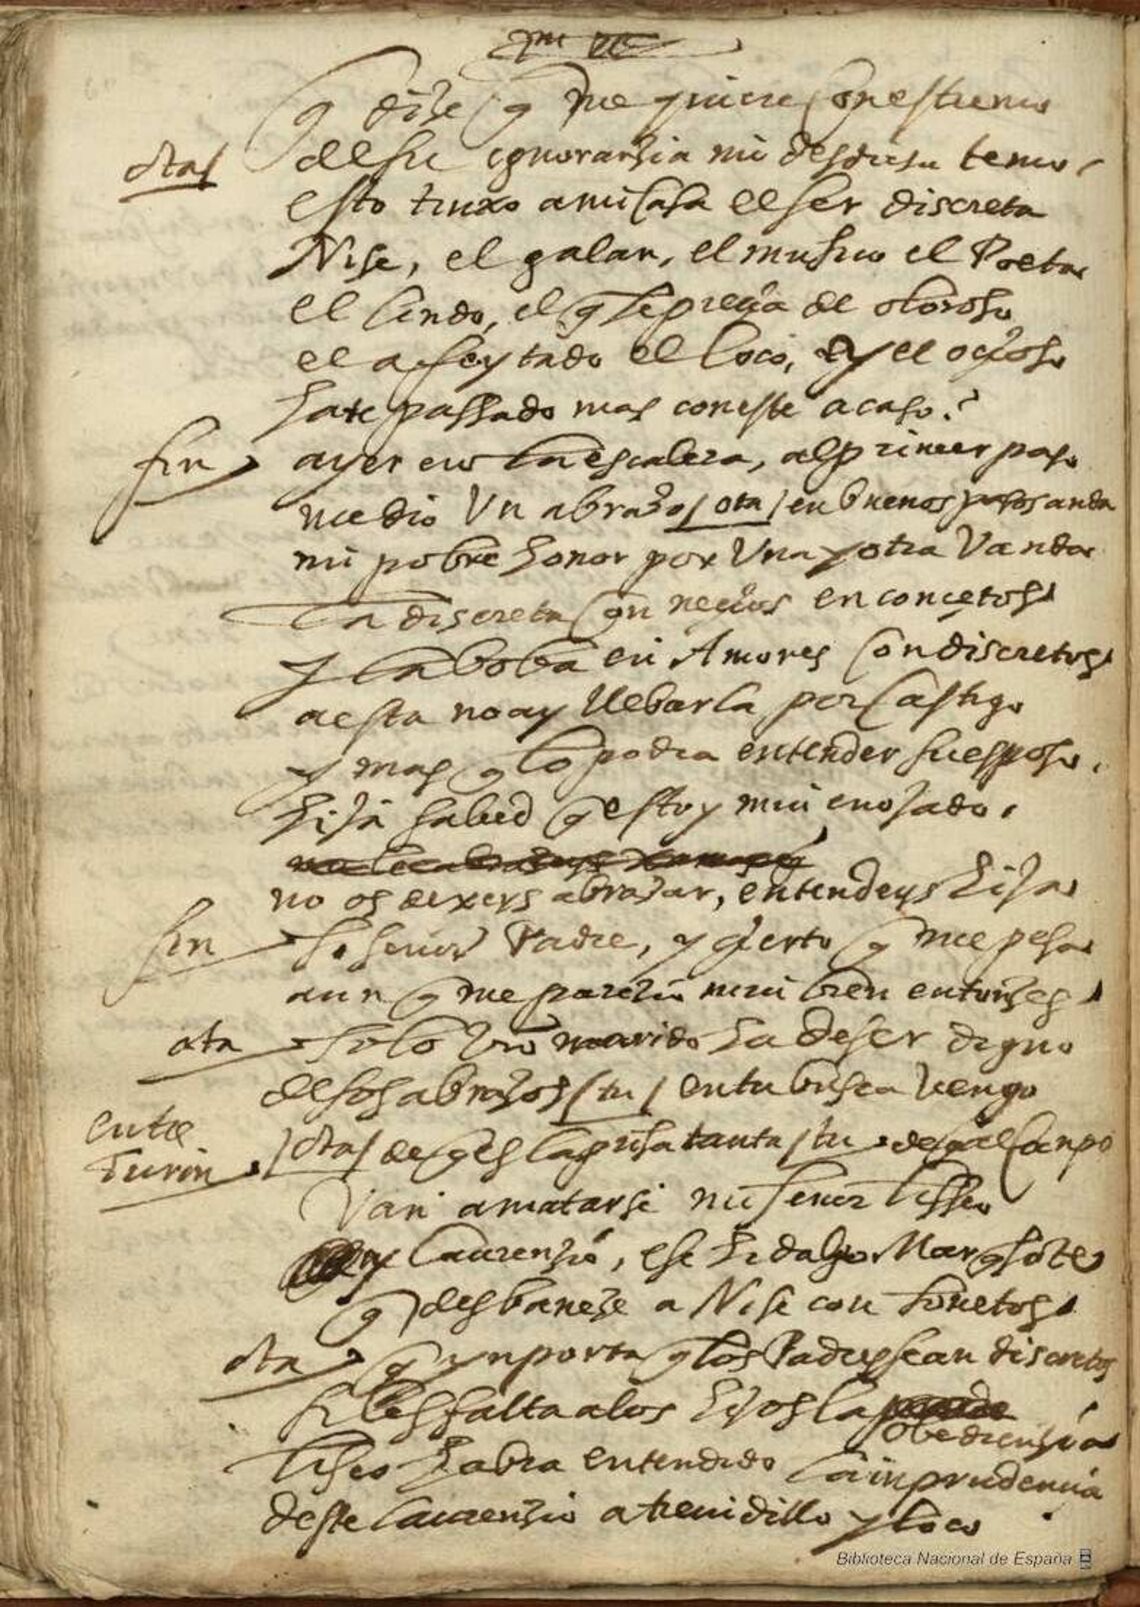 q dize q me quiere con estremo
otaº de su ygnoranzia mi desdicha temo
esto truxo a mi casa el ser discreta
Nise, el galan, el musico el Poeta
el lindo, el q se preçia de oloroso
el afeytado el loco, y el oçioso
hate passado mas con este acaso?
fin ayer en la escalera, al primer paso
me dio Un abrazo / ota / en buenos pasos anda
mi pobre honor por Una y otra Vanda
La discreta con neçios en conçetos
y la boba en Amores con discretos
a esta no ay llebarla por castigo
y mas q lo podra entender su esposo.
hija sabed q estoy mui enojado.
no os dexeys abrazar, entendeys hija
fin Si señor Padre, y çierto q me pesa
aun q me parezio mui bien entonzes
ota Solo Vro marido ha de ser digno
de sos abrazos / tu / en tu busca Vengo
entre / ota / de q es la prisa tanta / tu de q al canpo
Turin
Van a matarse mi señor Liseo
y Laurenzio, ese hidalgo Marquesote
q desbaneze a Nise con sonetos
ota q ynporta q los Padres sean discretos
si les falta a los hijos la
obedienzia
Liseo habra entendido la inprudencia
deste Laurenzio atreuidillo y loco
Biblioteca Nacional de España